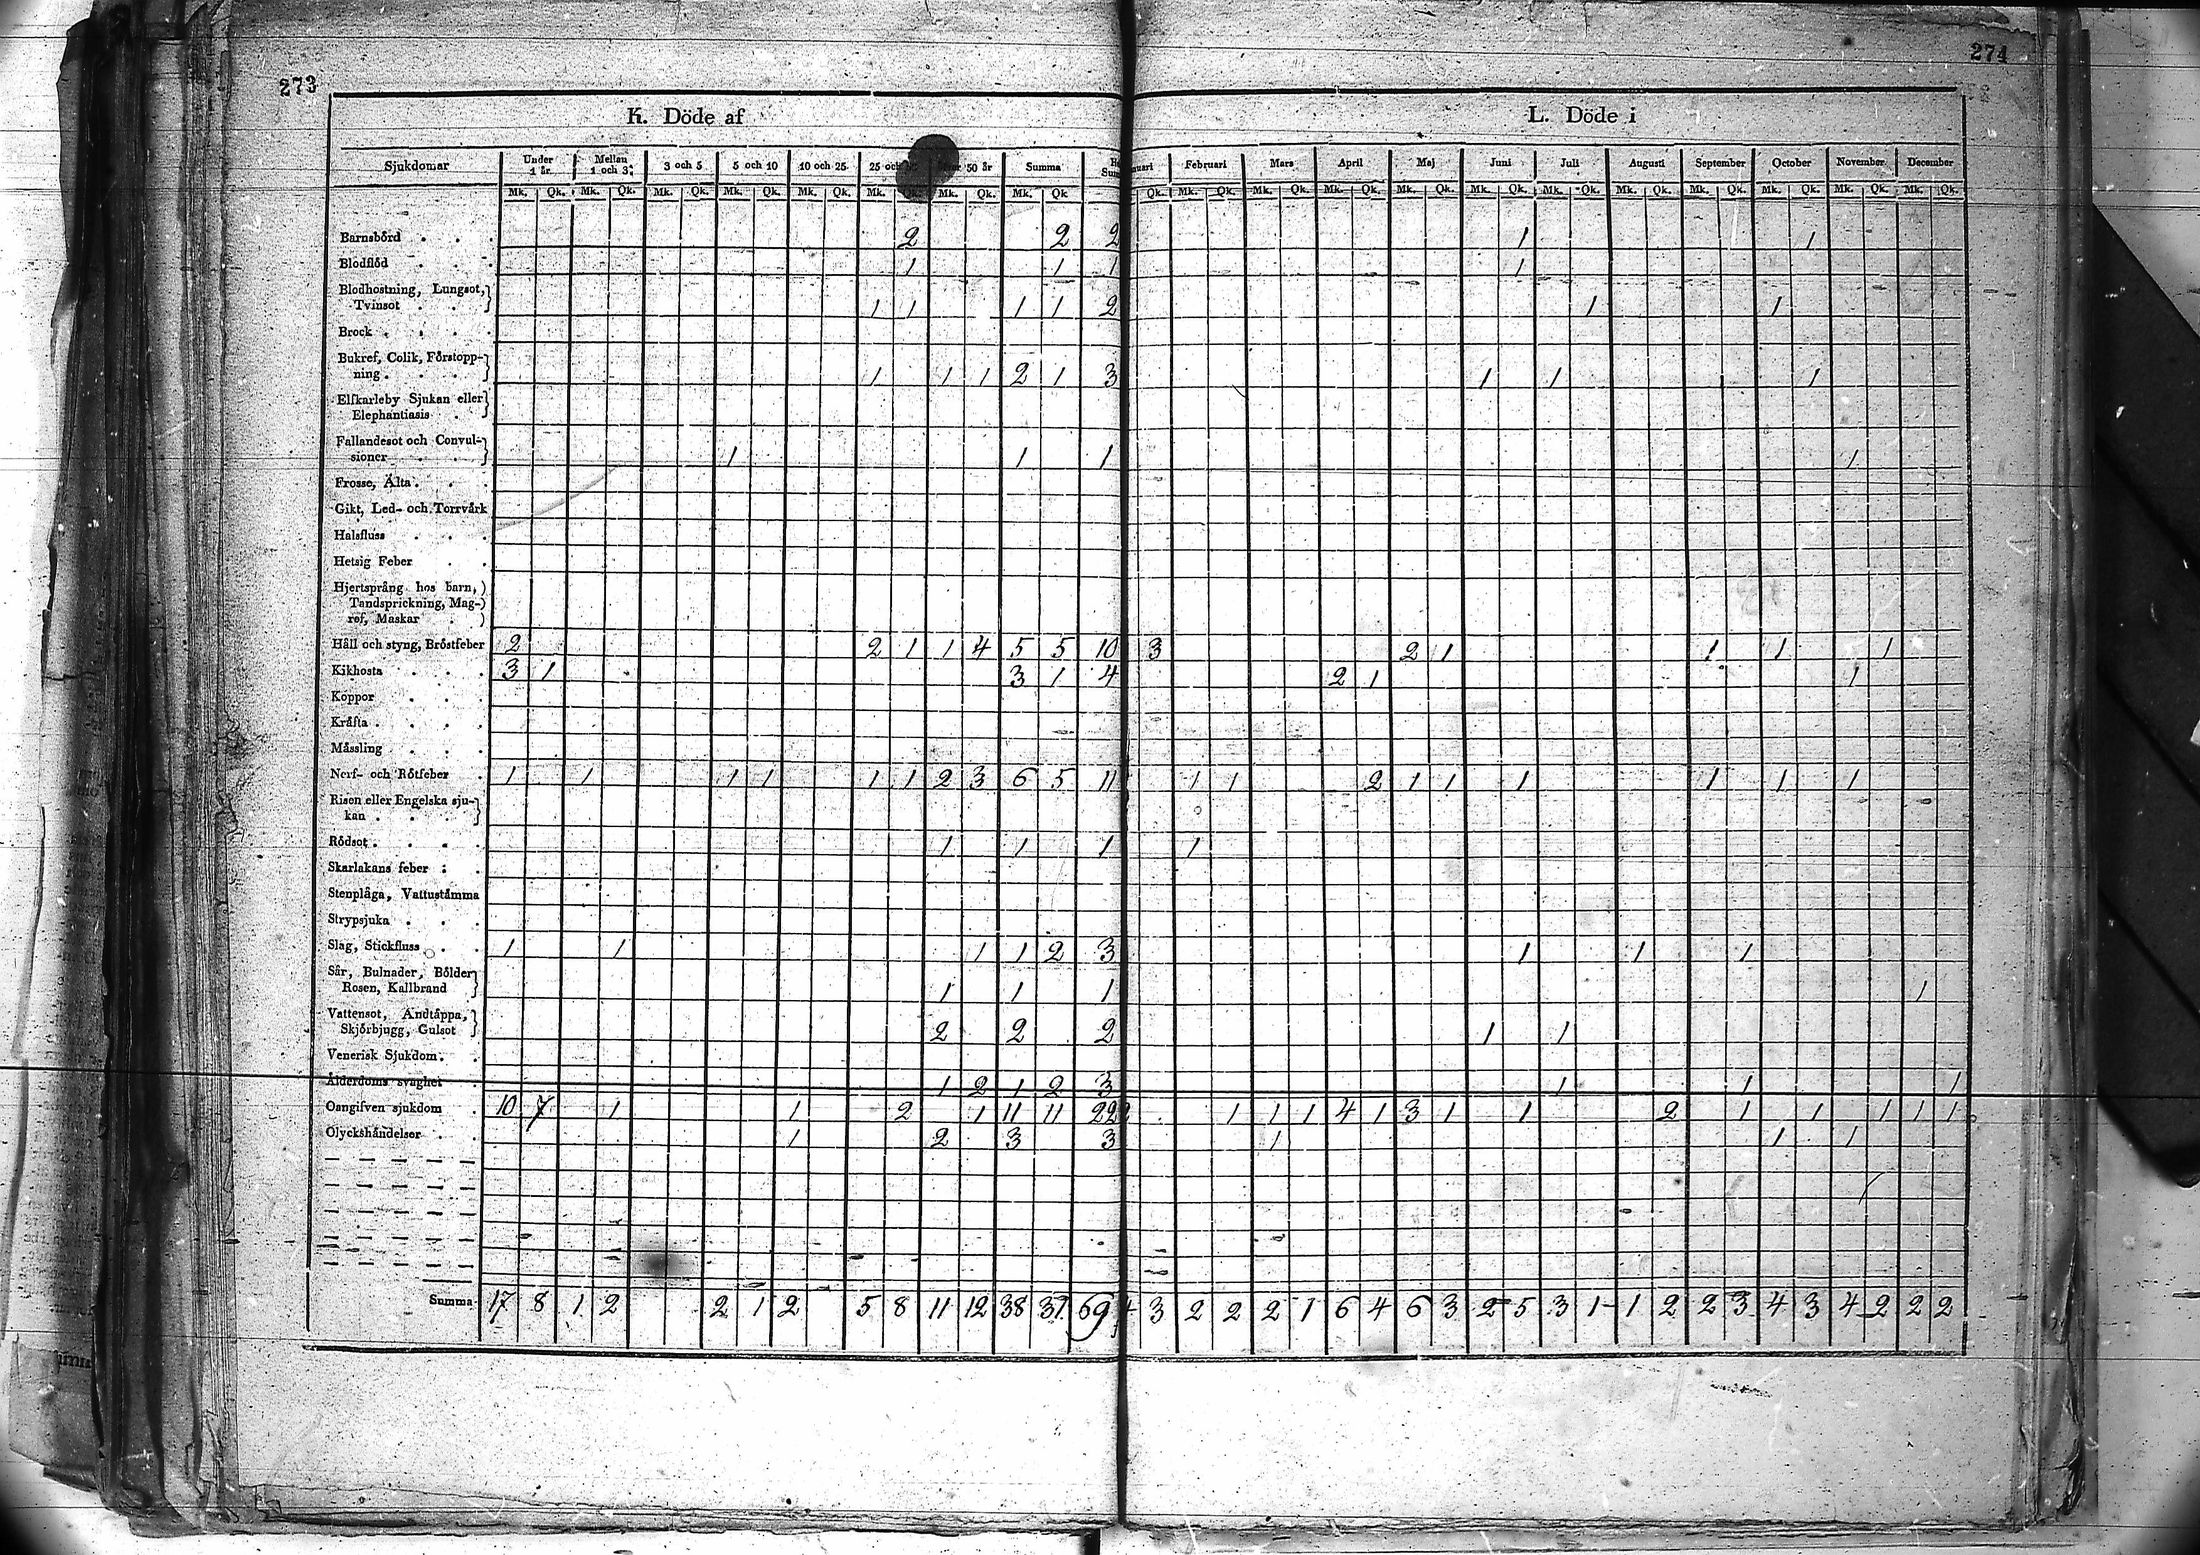 273
274
K. Döde af
L. Döde i
Sjukdomar Under 1 år. Mellan 1 och 3. 3 och 5 5 och 10 10 och 25 25 och 50 år Summa Februari Mars April Maj Juni Juli Augusti September October November December
Mk. Qk. Mk. Qk. Mk. Qk. Mk. Qk. Mk. Qk. Mk. Mk. Qk. Mk. Qk Qk. Mk. Qk. Mk. Qk. Mk. Qk. Mk. Qk. Mk. Qk. Mk. Qk. Mk. Qk. Mk. Qk. Mk. Qk. Mk. Qk. Mk. Qk.
Barnsbörd . . . 2 2 2 1 1
Blodflöd . . . 1 1 1 1
Blodhostning, Lungsot,
Tvinsot . . 1 1 1 1 2 1 1
Brock . . . .
Bukref, Colik, Förstopp-
ning . . . 1 1 1 2 1 3 1 1 1
Elfkarleby Sjukan eller
Elephantiasis .
Fallandesot och Convul-
sioner . . 1 1 1 1
Frosse, Älta . . .
Gikt, Led- och Torrvärk
Halsfluss . . .
Hetsig Feber . .
Hjertsprång hos barn,
Tandsprickning, Mag-
ref, Maskar .
Håll och styng, Bröstfeber 2 2 1 1 4 5 5 10 3 2 1 1 1 1
Kikhosta . . . 3 1 3 1 4 2 1 1
Koppor . . .
Kräfta . . . .
Måssling . . .
Nerf- och Rötfeber . 1 1 1 1 1 1 2 3 6 5 11 1 1 2 1 1 1 1 1 1
Risen eller Engelska sju-
kan . . .
Rödsot . . . . 1 1 1 1
Skarlakans feber . .
Stenplåga, Vattustämma
Strypsjuka . . .
Slag, Stickfluss . . 1 1 1 1 2 3 1 1 1
Sår, Bulnader, Bölder
Rosen, Kallbrand 1 1 1 1
Vattensot, Andtäppa,
Skjörbjugg, Gulsot 2 2 2 1 1
Venerisk Sjukdom . .
Ålderdoms svaghet . 1 2 1 2 3 1 1 1
Oangifven sjukdom . 10 7 1 1 2 1 11 11 22 1 1 1 4 1 3 1 1 2 1 1 1 1 1
Olyckshändelser . . 1 2 3 3 1 1 1
Summa 17 8 1 2 2 1 2 5 8 11 12 38 31 69 4 3 2 2 2 1 6 4 6 3 2 5 3 1 1 2 2 3 4 3 4 2 2 2